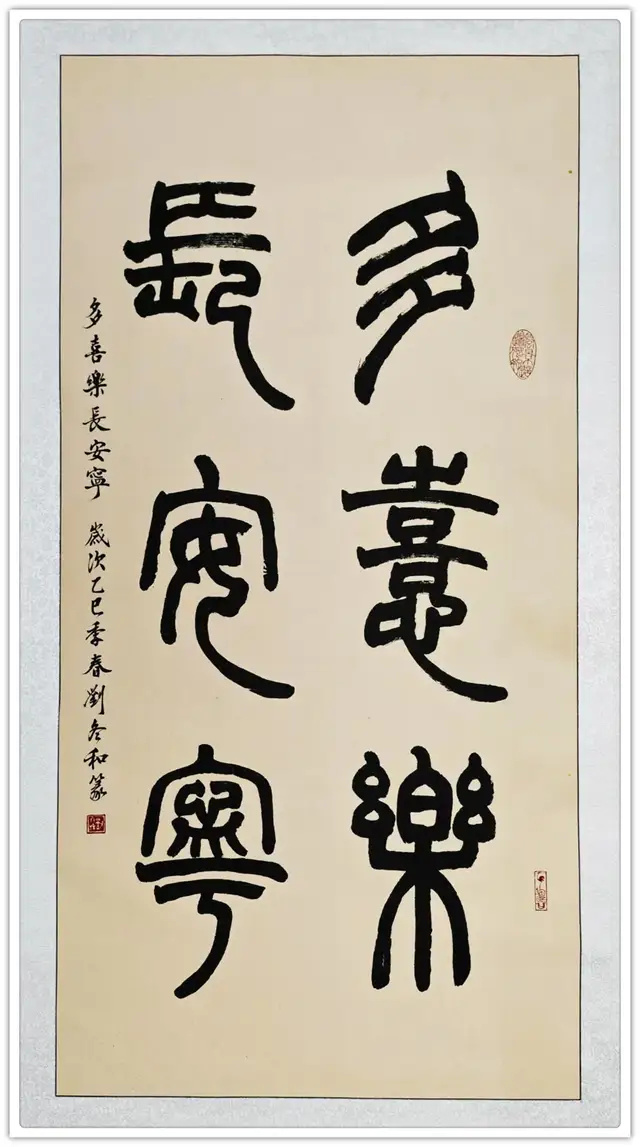 多憙樂
長安寧
多喜樂長安寧 歲次乙巳季春劉冬和篆